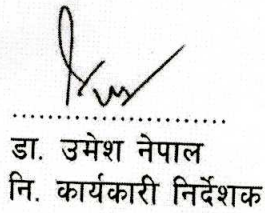 डा. उमेश नेपाल
नि. कार्यकारी निर्देशक